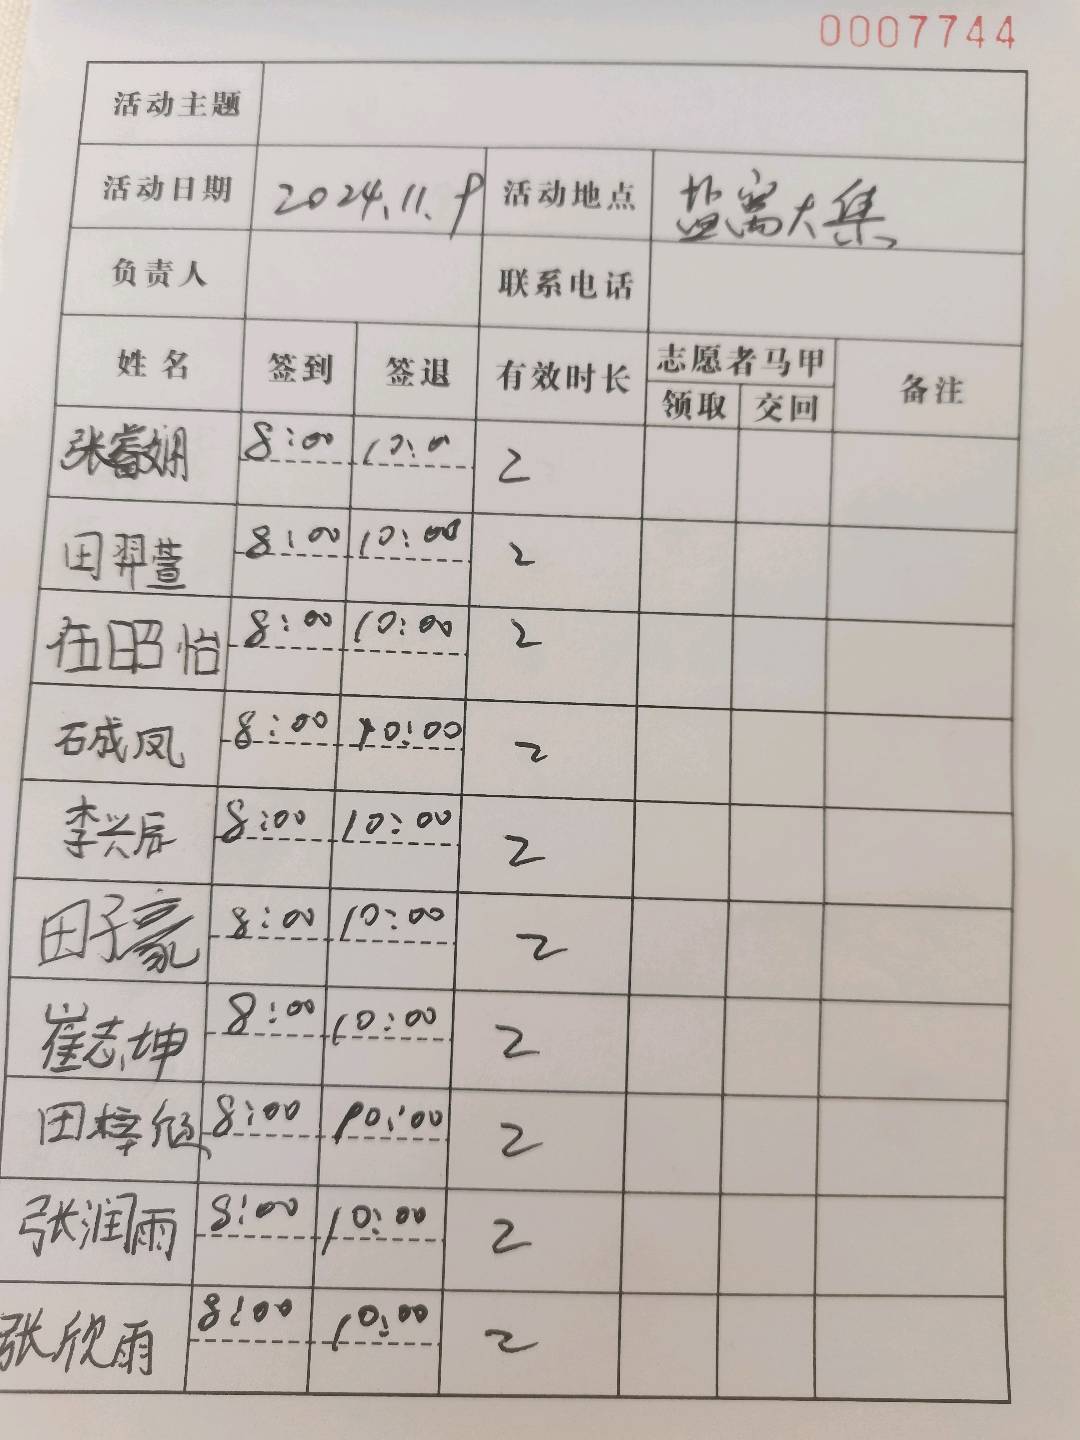 0007744
活动主题
活动日期 2024.11.9 活动地点 盐窝大集
负责人 联系电话
姓名 签到 签退 有效时长 志愿者马甲 备注
领取 交回
张睿娴 8:00 10:00 2
田羿萱 8:00 10:00 2
伍昭怡 8:00 10:00 2
石成凤 8:00 10:00 2
李兴后 8:00 10:00 2
田子豪 8:00 10:00 2
崔志坤 8:00 10:00 2
田梓颀 8:00 10:00 2
张润雨 8:00 10:00 2
张欣雨 8:00 10:00 2